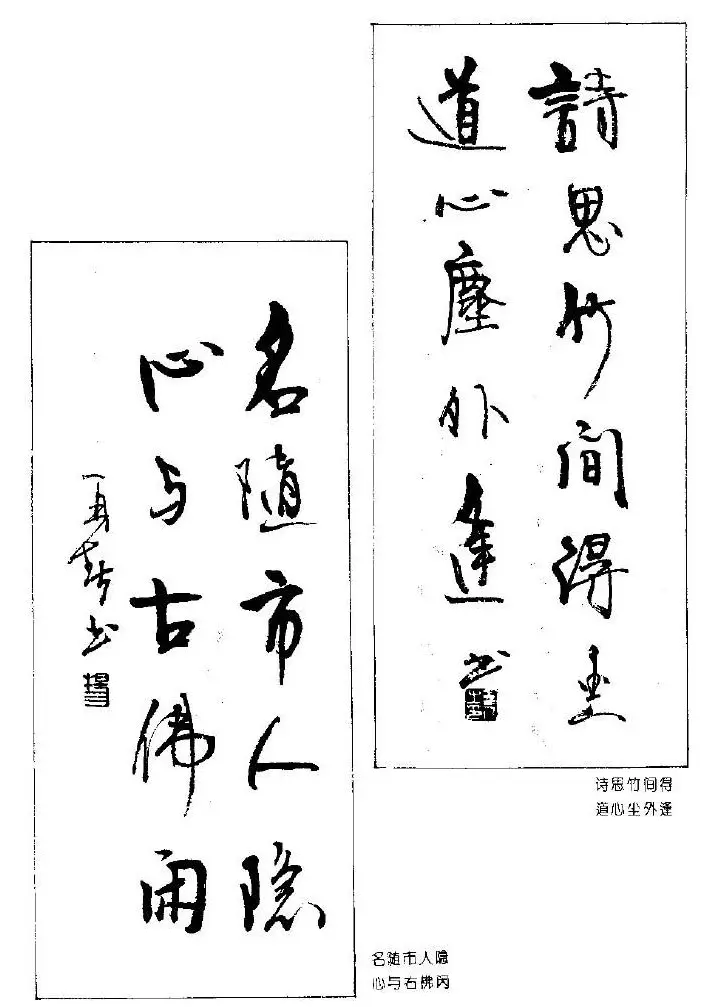 詩思竹间得
道心塵外逢
书
诗思竹间得
道心尘外逢
名随市人隐
心与古佛闲
书
名随市人隐
心与古佛闲